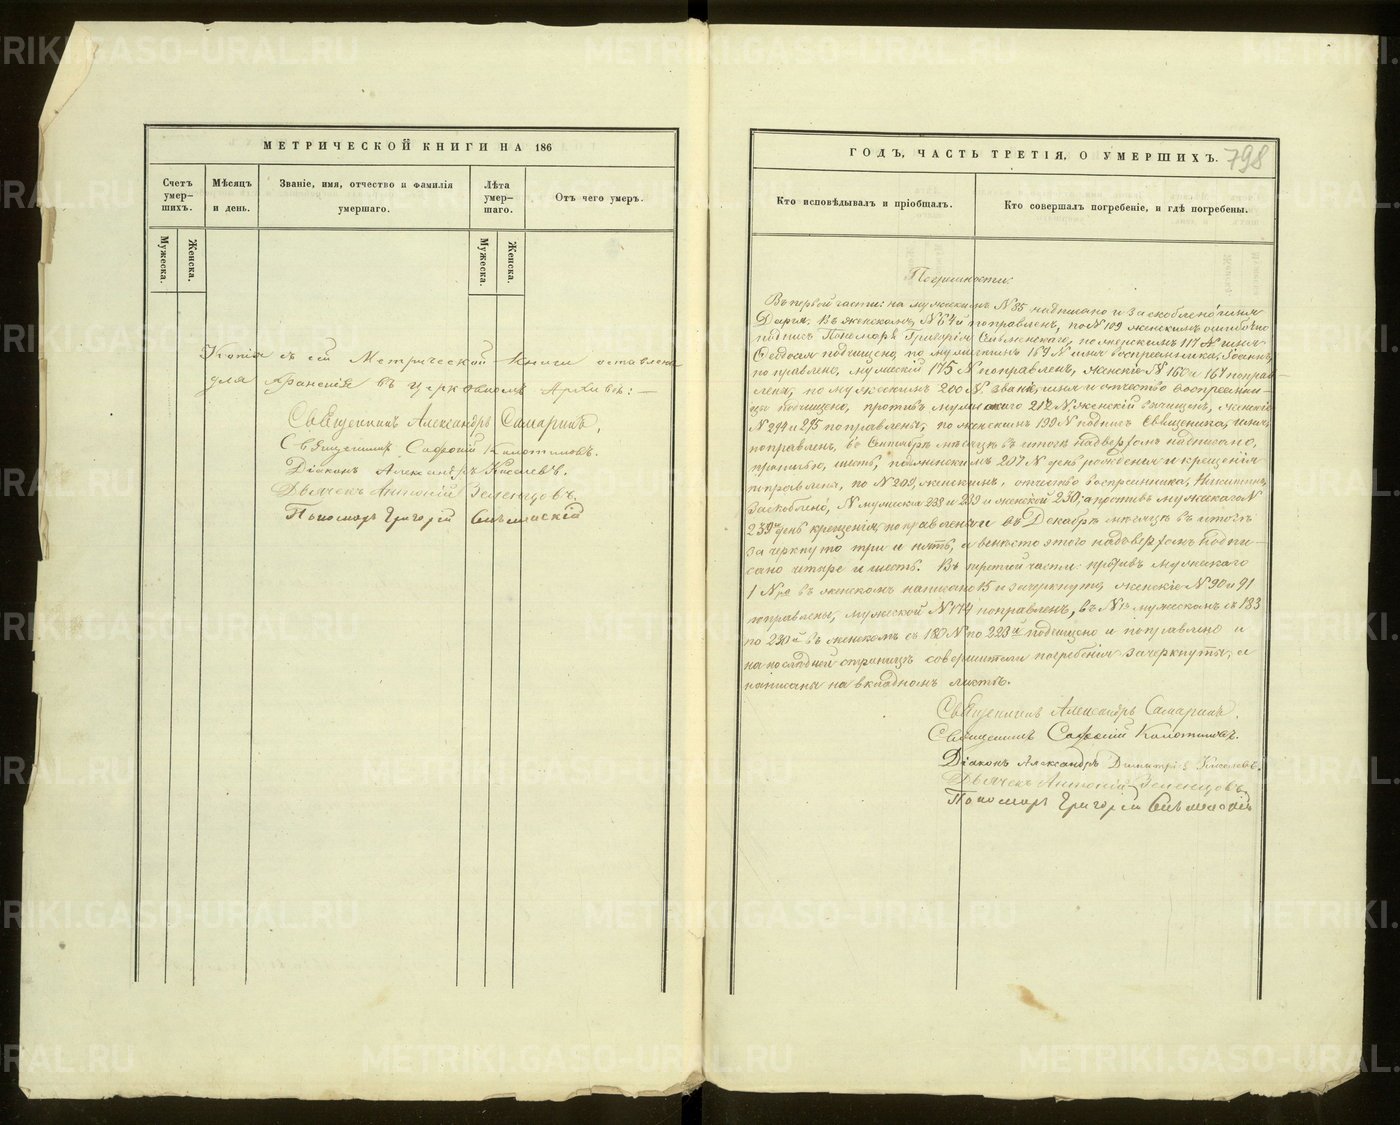 МЕТРИЧЕСКОЙ КНИГИ НА 186
Счетъ умер-шихъ.
Мѣсяцъ и день.
Званіе, имя, отчество и фамилія умершаго.
Лѣта умер-шаго.
Отъ чего умеръ.
Мужеска.
Женска.
Мужеска.
Женска.
Копія съ сей Метрической Книги оставлена
для храненія въ Церковномъ Архивѣ: —
Священникъ Александръ Самаринъ.
Священникъ
Діаконъ Александръ Киселевъ.
Дьячекъ Антоній Зеленцовъ.
Пономарь Григорій
ГОДЪ, ЧАСТЬ ТРЕТІЯ, О УМЕРШИХЪ.
798
Кто исповѣдывалъ и пріобщалъ.
Кто совершалъ погребеніе, и гдѣ погребены.
Погрешности:
Въ первой части: на мужескимъ № 85 надписано и заскоблено имя
Дарья. Въ женскомъ, № 54й поправленъ, по № 109 женскимъ ошибочно
подпись Пономаря Григорія по женскимъ 117 № имя
Феодосія подчищено, по мужескимъ 169 № имя воспріемника, Іоаннъ,
поправлено, мужескій 175 № поправленъ, женскіе № 160 и 164 поправ-
лена, по мужескимъ 200 №, званіе, имя и отчество воспріемни-
цы подчищено, противъ мужескаго 212 № женскій вычищенъ, женскіе
№ поправлены, по женскимъ 199 № подпись Священника, имя,
поправленъ, въ Сентябрѣ мѣсяцѣ въ итогѣ надверхомъ надписано,
третью, шесть, по женскимъ 207 № день рожденія и крещенія
поправлена, по № 209, женскимъ, отчество воспріемника, Никитинъ,
заскоблено, № мужескіе 238 и 239 и женской 230; а противъ мужскаго №
239й день крещенія, поправлены и въ Декабрѣ мѣсяцѣ въ итогѣ
зачеркнуто три и пять, а вмѣсто этого надъ верхомъ подпи-
сано четыре и шесть. Въ третьей части противъ мужескаго
1 № въ женскомъ написано 15 и зачеркнуто, женскіе № 90 и 91
поправлены, мужеской № 174 поправленъ, въ № мужескомъ съ 183
по 230й въ женскомъ съ 180 № по 223й подчищено и поправлено и
на последней страницѣ совершители погребенія зачеркнуты, и
написаны на вкладномъ листѣ.
Священникъ Александръ Самаринъ.
Священникъ
Діаконъ Александръ Димитрі Киселевъ.
Дьячекъ Антоній Зеленцовъ
Пономарь Григорій
METRIKI.GASO-URAL.RU